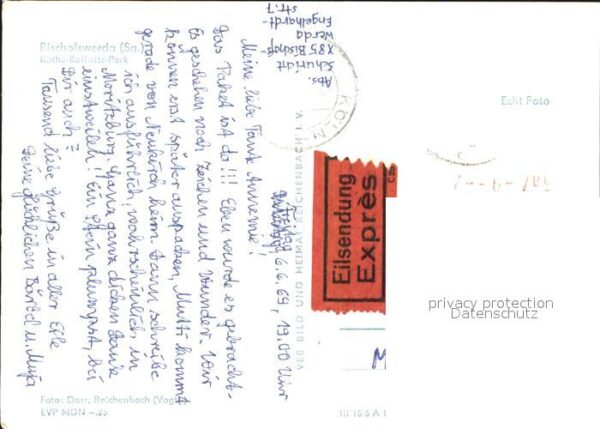 Bischofswerda (Sa.)
Käthe-Kollwitz-Park
Abs.
Schuricht
X85 Bischofs-
werda
Engelhardt-
str. 7
Freitag
6.6.69, 19.00 Uhr
Meine liebe Tante Annemie!
Das Paket ist da!!! Eben wurde es gebracht.
Es geschehen noch Zeichen und Wunder. Wir
können erst später auspacken, Mutti kommt
gerade von Neukirch heim. Dann schreibe
ich ausführlich, wahrscheinlich in
Moritzburg. Ganz ganz dicken Dank
einstweilen! Ein Stein plumpst, bei
Dir auch?
Tausend liebe Grüße in aller Eile
Deine glücklichen Bärbel u. Mutti
Foto: Darr, Reichenbach (Vogtl.)
EVP MDN -,25
VEB BILD UND HEIMAT REICHENBACH I. V.
III 18 6 A 1
Echt Foto
KÖLN
Eilsendung
Exprès
M
privacy protection
Datenschutz